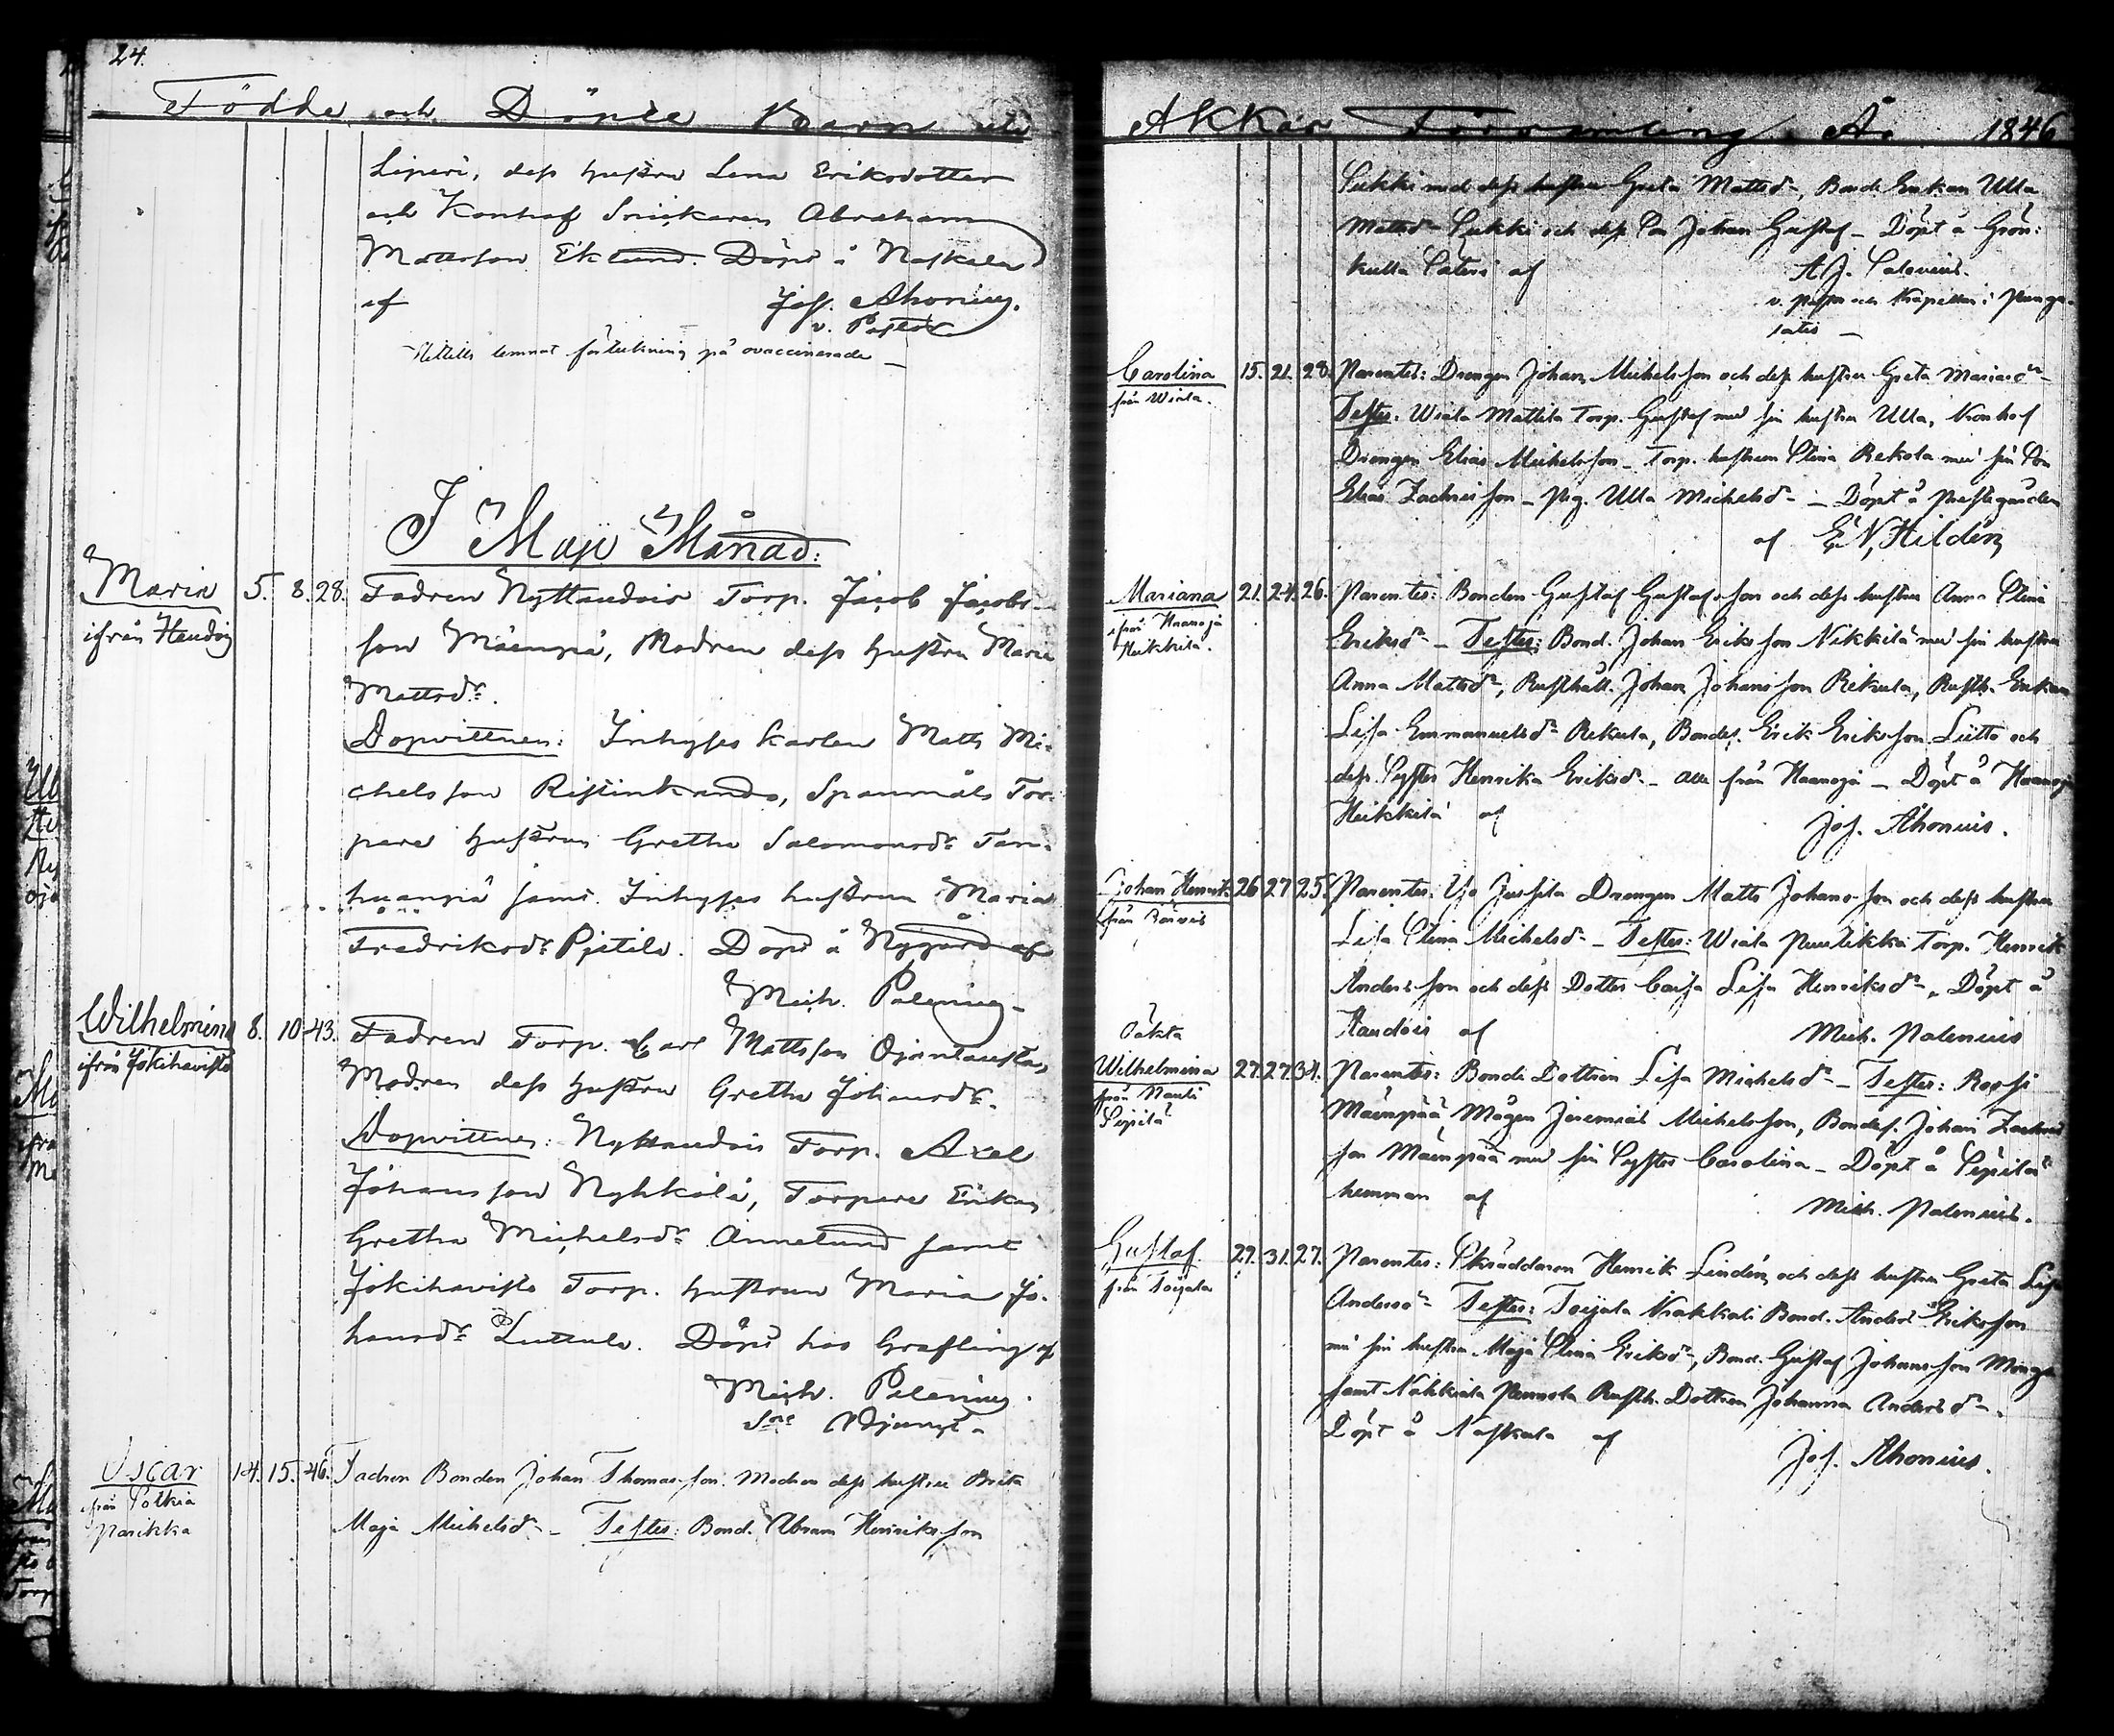 24.
Födde och Döpte Barn uti
Liperi, dess hustru Lena Eriksdotter
och Konhof Snickaren Abraham
Mattsson Eklund. Döpt å Naskala
af Jos. Ahonius.
v. Pastor
lemnat förteckning på ovaccinerade
I Maji Månad:
Maria 5. 8. 28. Fadren Nyttaudois Torp. Jacob Jacobs-
ifrån Haudois son Mäenpä, Modren dess hustru Maria
Mattsdr.
Dopvittnen: Inhyses karlen Matts Mi-
chelsson Ristinkanda, Spanmåls Tor-
pare hustrun Gretha Salomonsdr Tan-
huanpä samt Inhyses hustrun Maria
Fredriksdr Pjetilä. Döpt å Nygård af
Mich. Palenius
Wilhelmina 8. 10. 43. Fadren Torp. Carl Mattsson Ojanlausta,
ifrån Jokihavisto Modren dess hustru Gretha Johansdr.
Dopvittnen: Nyttaudois Torp. Axel
Johansson Nyhkälä, Torpare Enkan
Gretha Michelsdr Annelund samt
Jokihavisto Torp. hustrun Maria Jo-
hansdr Luttula. Döpt hos Grafling af
Mich. Palenius.
Sne Adjunct.
Oscar 14. 15. 46. Fadren Bonden Johan Thomasson. Modren dess hustru Brita
från Sotkia Maja Michelsdr – Testes: Bond. Abram Henriksson
Parikka
Akkas Församling År 1846
Sukki med dess hustru Greta Mattsdr, Bonde Enkan Ulla
Mattsdr Sukki och dess Son Johan Gustaf – Döpt å Grön-
kulla Säteri af A. J. Salovius.
v. Pastor och Kapellan i Punga-
laitis –
Carolina 15. 21. 28. Parentes: Drengen Johan Michelsson och dess hustru Greta Mariasdr –
från Wiala. Testes: Wiala Mattila Torp. Gustaf med sin hustru Ulla, Konhof
Drengen Elias Michelsson – Torp. hustrun Stina Rekola med sin Son
Elias Zachrisson – Pig. Ulla Michelsdr – Döpt å Prestgården
af E. N. Hildén
Mariana 21. 24. 26. Parentes: Bonden Gustaf Gustafsson och dess hustru Anna Stina
från Haanoja Eriksdr – Testes: Bond. Johan Eriksson Nikkilä med sin hustru
Heikkilä. Anna Mattsdr, Rusthåll. Johan Johansson Rekula, Rusth. Enkan
Lisa Emmanuelsdr Rekula, Bondes. Erik Eriksson Lietto och
dess Syster Henrika Eriksdr – alla från Haanoja – Döpt å Haanoja
Heikkilä af Jos. Ahonius.
Johan Henrik 26 27 25. Parentes: Yjo Jussila Drengen Matts Johansson och dess hustru
Lisa Stina Michelsdr – Testes: Wiala Puulikka Torp. Henrik
Andersson och dess Dotter Caisa Lisa Henriksdr – Döpt å
Haudois af Mich. Palenius
Oäkta
Wilhelmina 27. 27. 34. Parentes: Bonde Dottren Lisa Michelsdr – Testes: Rossi
från Nauli Mäenpää Mågen Jeremias Michelsson, Bondes. Johan Zachris
Sipilä son Mäenpää med sin Syster Carolina – Döpt å Sipilä
hemman af Mich. Palenius.
Gustaf 27. 31. 27. Parentes: Skräddaren Henrik Lindén och dess hustru Greta Lisa
från Toijala Andersdr – Testes: Toijala Krakkali Bond. Anders Eriksson
med sin hustru Maja Stina Eriksdr, Bond. Gustaf Johansson Monga
samt Nahkiala Pennola Rusth. Dottren Johanna Andersdr –
Döpt å Naskala af Jos. Ahonius.